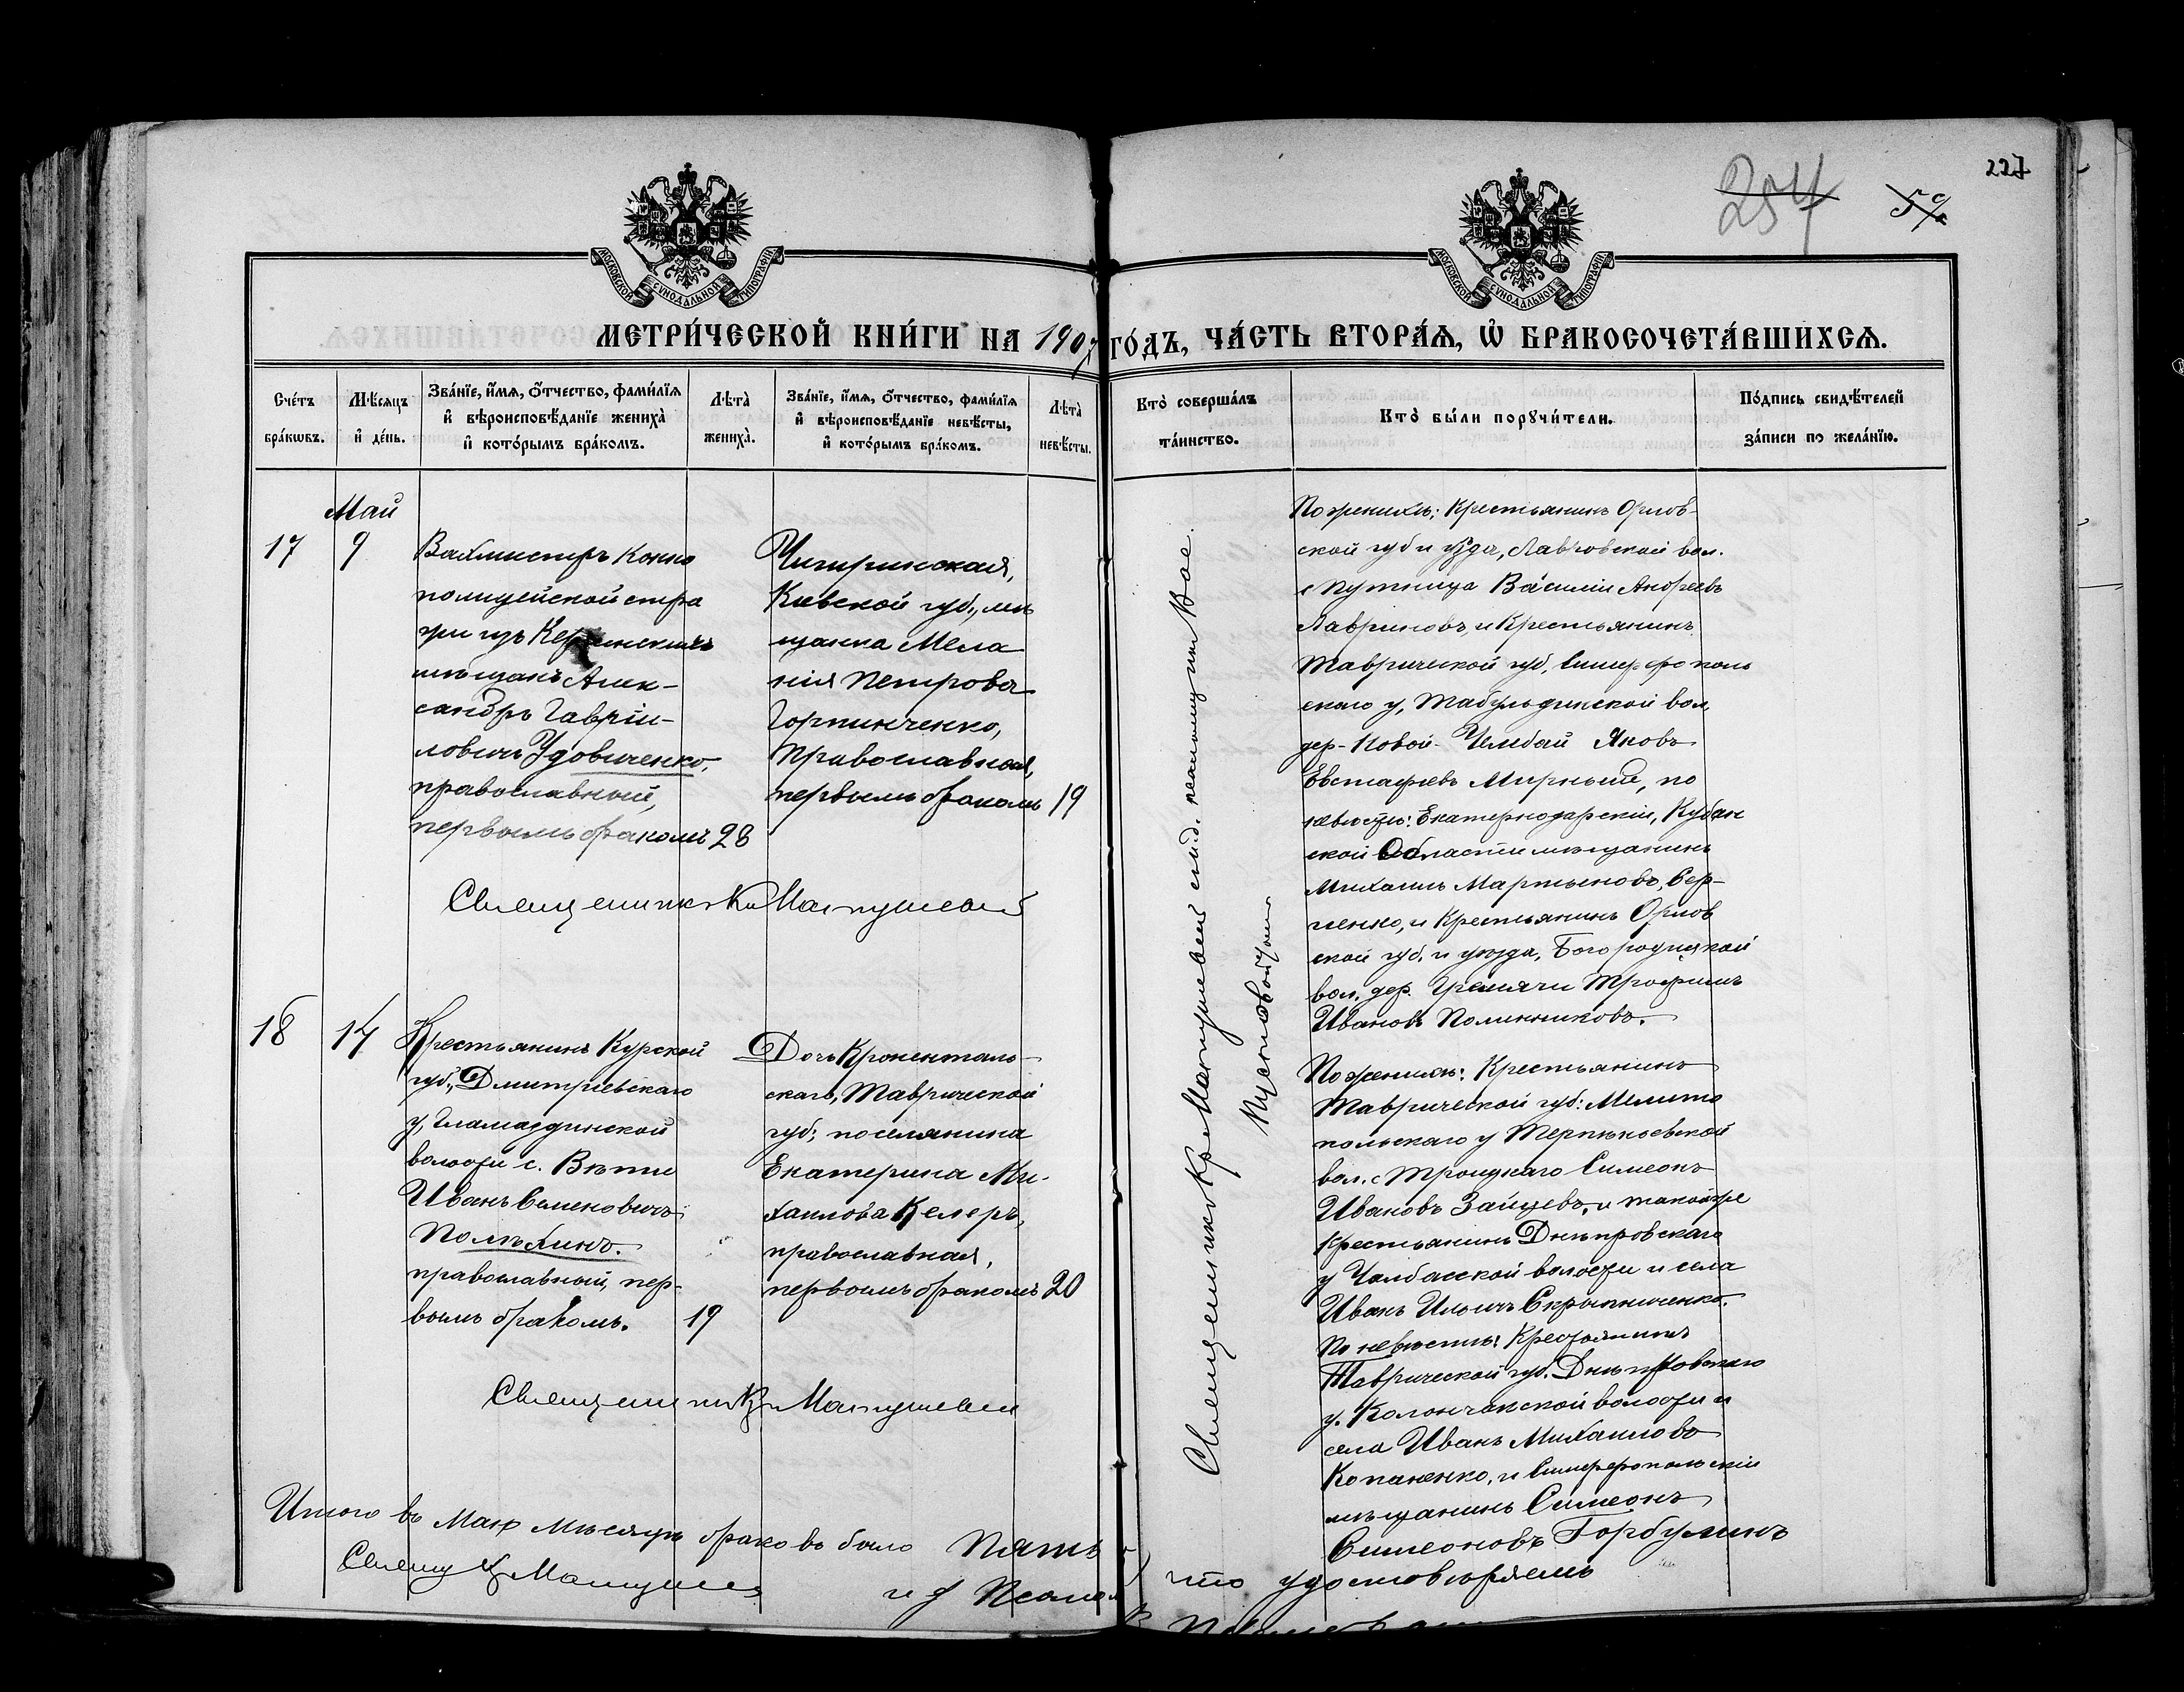 227
254
59
МОСКОВСКОЙ СѴНОДАЛЬНОЙ ТИПОГРАФІИ
МОСКОВСКОЙ СѴНОДАЛЬНОЙ ТИПОГРАФІИ
МЕТРИ́ЧЕСКОЙ КНИ́ГИ НА 1907 ГО́ДЪ, ЧА́СТЬ ВТОРА́Ѧ, Ѽ БРАКОСОЧЕТА́ВШИХСѦ.
Сче́тъ бра́кѡвъ.
Мѣ́сяцъ и҆ де́нь.
Зва́нїе, и҆́мѧ, ѻ҆́тчество, фами́лїѧ
и҆ вѣроисповѣ́данїе жениха̀
и҆ кото́рымъ бра́комъ.
Лѣта̀ жениха̀.
Зва́нїе, и҆́мѧ, ѻ҆́тчество, фами́лїѧ
и҆ вѣроисповѣ́данїе невѣ́сты,
и҆ кото́рымъ бра́комъ.
Лѣта̀ невѣ́сты.
Кто̀ соверша́лъ
та́инство.
Кто̀ бы́ли порꙋчи́тели.
По́дпись свидѣ́телей
за́писи по жела́нїю.
Май
17
9
Вахмистръ Конно
полицейской стра
жи изъ
мѣщанъ Алек-
сандръ Гаврiи-
ловичъ Удовиченко,
православный,
первымъ бракомъ 28
Чигиринская,
Кiевской губ., мѣ
щанка Мела
нiя Петрова
Горпинченко,
Православная,
первымъ бракомъ 19
Священникъ Матушевскiй
По женихѣ: Крестьянинъ Орлов-
ской губ и уѣзда, Лавровской вол.
с Путимца Василiй Андреевъ
Лавриновъ, и Крестьянинъ
Таврической губ, Симферополь
скаго у, Табульдинской вол,
дер- Новой- Челебай Яковъ
Евстафiевъ Мирный, по
невѣстѣ: Екатеринодарскiй, Кубан
ской Области мѣщанинъ
Михаилъ Мартыновъ, Сер-
гiенко, и Крестьянинъ Орлов
ской губ. и уѣзда, Богородицкой
вол. дер. Гремячи Трофимъ
Ивановъ Полинниковъ.
18
14
Крестьянинъ Курской
губ., Дмитрiевскаго
у,
волости с. Вѣти
Иванъ Семеновичъ
Полѣхинъ.
православный, пер-
вымъ бракомъ. 19
Дочь Кроненталь-
скаго, Таврической
губ; поселянина
Екатерина Ми-
хаилова Келеръ,
православная,
первымъ бракомъ 20
Священникъ Матушевскiй
По женихѣ: Крестьянинъ
Таврической губ: Мелито
польскаго у Терпѣнiевской
вол. с Троицкаго Симеонъ
Ивановъ Зайцевъ, и такой же
крестьянинъ Днѣпровскаго
у Чалбасской волости и села
Иванъ Ильичъ Скрыпниченко.
По невѣстѣ: Крестьянинъ
Таврической губ. Днѣпровскаго
у. Колончакской волости и
села Иванъ Михаиловъ
Копаненко, и Симферопольскiй
мѣщанинъ Симеонъ
Симеоновъ Горбулинъ
Священникъ Матушевскiй
Итого въ Маѣ мѣсяцѣ браковъ было Пять
что удостовѣряемъ
Священ Матушев
и д Псалом